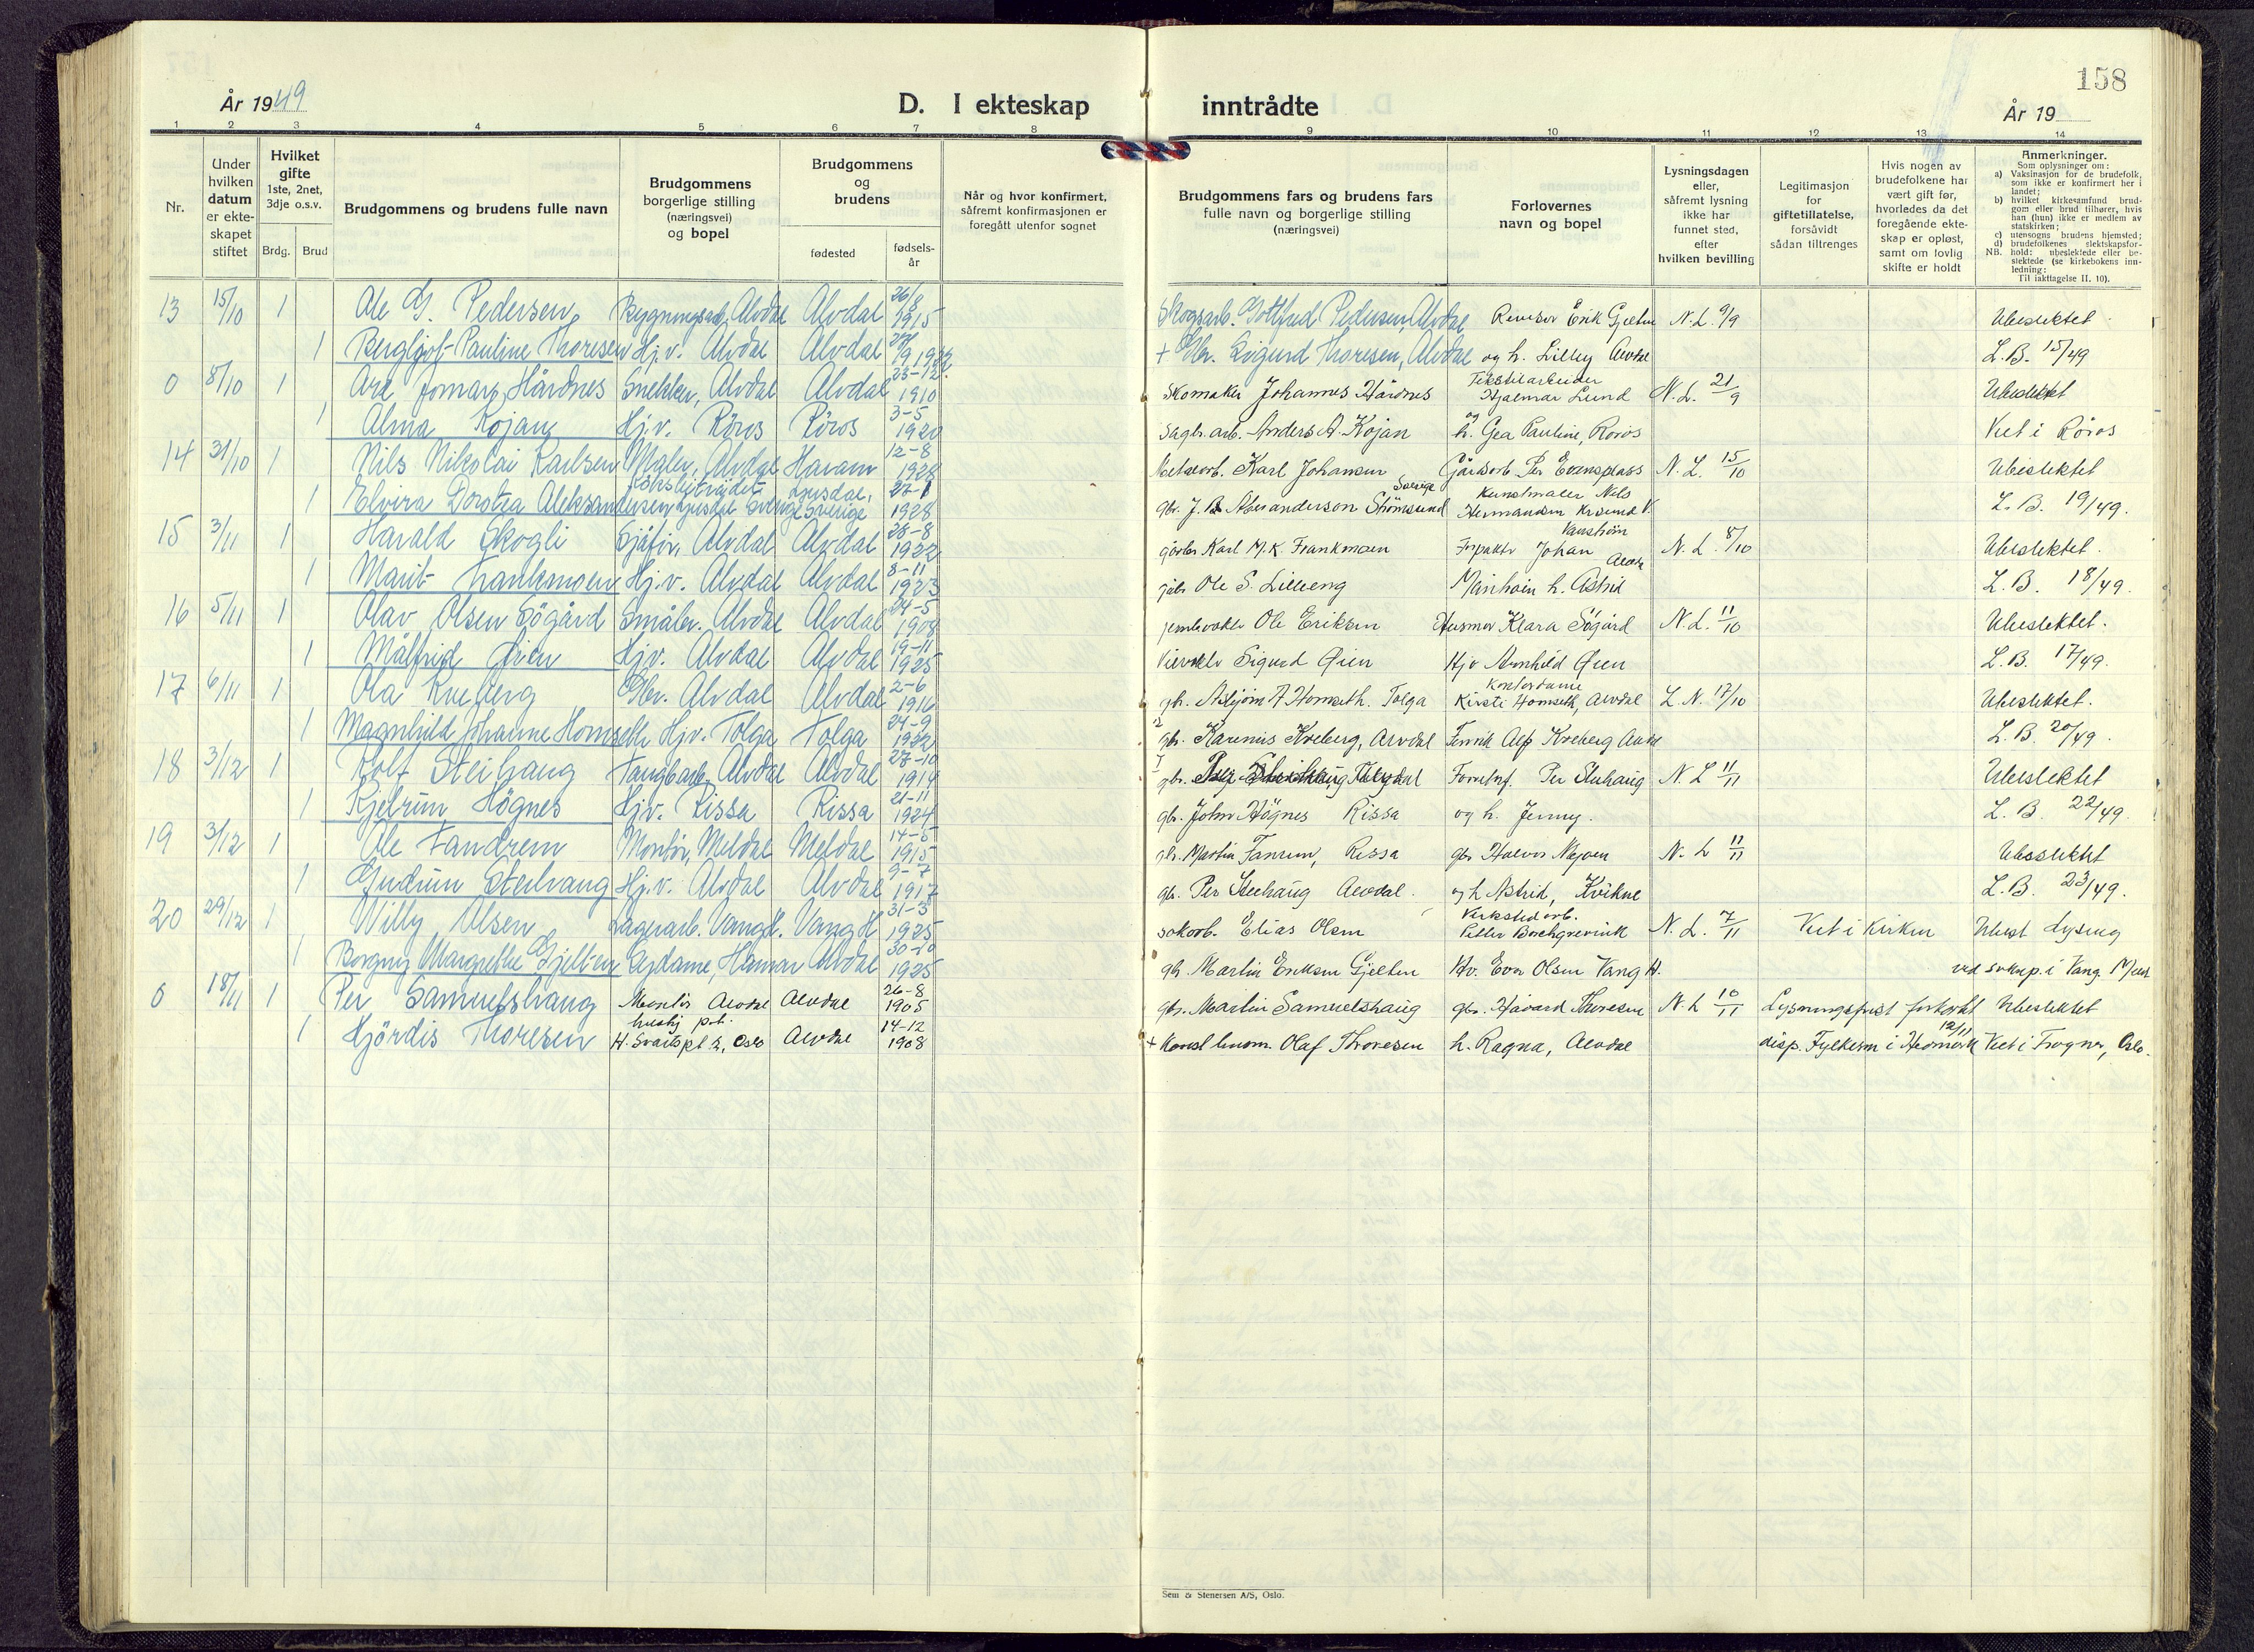 158
År 1949
D. I ekteskap inntrådte
År 19
1 2 3 4 5 6 7 8 9 10 11 12 13 14
Nr.
Under hvilken datum er ekte-skapet stiftet
Hvilket gifte 1ste, 2net, 3dje o.s.v.
Brdg. Brud
Brudgommens og brudens fulle navn
Brudgommens borgerlige stilling (næringsvei) og bopel
Brudgommens og brudens
fødested
fødsels-år
Når og hvor konfirmert, såfremt konfirmasjonen er foregått utenfor sognet
Brudgommens fars og brudens fars fulle navn og borgerlige stilling (næringsvei)
Forlovernes navn og bopel
Lysningsdagen eller, såfremt lysning ikke har funnet sted, efter hvilken bevilling
Legitimasjon for giftetillatelse, forsåvidt sådan tiltrenges
Hvis nogen av brudefolkene har vært gift før, hvorledes da det foregående ekte-skap er opløst, samt om lovlig skifte er holdt
Anmerkninger.
Som oplysninger om:
a) Vaksinasjon for de brudefolk, som ikke er konfirmert her i landet;
b) hvilket kirkesamfund brud-gom eller brud tilhører, hvis han (hun) ikke er medlem av statskirken;
c) utensogns brudens hjemsted;
d) brudefolkenes slektskapsfor-hold: ubeslektede eller be-slektede (se kirkebokens inn-ledning:
NB.
Til iakttagelse II. 10).
13 15/10 1 Ole G. Pedersen Bygningsarb. Alvdal Alvdal 26/8 1915 Skogsarb. Gottfred Pedersen, Alvdal Revisor Erik Gjelten N.L. 9/9 Ubeslektet
1 Bergljot Pauline Thoresen Hj.v. Alvdal Alvdal + Gbr. Sigurd Thoresen, Alvdal og h. Lilley Alvdal L.B. 15/49
0 8/10 1 Are Jomar Hårdnes Snekker, Alvdal Alvdal 23-12 1910 Skomaker Johannes Hårdnes Tekstilarbeider Hjalmar Lund N.L. 21/9 Ubeslektet
1 Alma Kojan Hj.v. Röros Röros 3-5 1920 Sagbr.arb. Anders A. Kojan og h. Gea Pauline, Røros Viet i Røros
14 31/10 1 Nils Nikolai Karlsen Maler, Alvdal Haram 12-8 1928 Karl Johansen Gårdsarb. Per Evensplass N.L. 15/10 Ubeslektet
1 Elvira Dorotea Aleksandersen Ljusdal Sverige Ljusdal, Sverige 27-1 1928 gbr. J. B. Alexanderson Strömsund Sverige Kunstmaler Nils Hermansen Kr.sund N. L.B. 19/49.
15 3/11 1 Harald Skogli Sjåfør, Alvdal Alvdal 28-8 1922 gårdbr Karl M.K. Frankmoen Johan Vanström Alvdal N.L. 8/10 Ubeslektet.
1 Marit Frankmoen Hj.v. Alvdal Alvdal 8-11 1923 gbr Ole S. Lilleeng h. Astrid L.B. 18/49.
16 5/11 1 Olav Olsen Sögård Småbr. Alvdal Alvdal 24-5 1908 Ole Eriksen Husmor Klara Søgård N.L. 11/10 Ubeslektet.
1 Målfrid Øien Hj.v. Alvdal Alvdal 19-11 1925 Sigurd Øien Hjv Arnhild Øien L.B. 17/49.
17 6/11 1 Ola Kveberg Gbr. Alvdal Alvdal 2-6 1916 gbr. Asbjörn A Homseth. Tolga Kontordame Kirsti Homseth, Alvdal L.N. 17/10 Ubeslektet.
1 Magnhild Johanne Homseth Hj.v. Tolga Tolga 24-9 1922 gbr. Karenus Kveberg, Alvdal Fenrik Alf Kveberg Alvdal L.B. 20/49.
18 3/12 1 Rolf Steihaug Alvdal Alvdal 27-10 1914 gbr. Per Steihaug Per Steihaug N.L 11/11 Ubeslektet
1 Kjellrun Högnes Hj.v. Rissa Rissa 21-11 1924 gbr. John Högnes Rissa og h. Jenny. L.B. 22/49.
19 3/12 1 Ole Fandrem Montör, Meldal Meldal 14-5 1915 gbr. Martin Fanrem, Rissa gbr Halvor N.L 11/11 Ubeslektet
1 Gudrun Steihaug Hj.v. Alvdal Alvdal 9-7 1917 gbr. Per Steihaug Alvdal. og h Astrid, Kvikne L.B. 23/49.
20 29/12 1 Willy Olsen Lagerarb. Vang H. Vang H 31-3 1925 Elias Olsen Verkstedarb. Petter Borchgrevink N.L. 7/11 Viet i kirken Ubesl Lysing
1 Borgny Margrethe Gjelten Hamar Alvdal 30-10 1925 gbr. Martin Eriksen Gjelten Hv. Eva Olsen Vang H. ved soknep. i Vang
0 18/11 1 Per Samuelshaug Montör Alvdal Alvdal 26-8 1905 gbr. Martin Samuelshaug gbr. Håvard Thoresen N.L 10/11 Lysningsfrist forkortet Ubeslektet
1 Hjördis Thoresen H. Svartspl. 2, Oslo Alvdal 14-12 1908 + Olaf Thoresen h. Ragna, Alvdal disp. Fylkesm i Hedmark 12/11 Viet i Frogner, Oslo.
Sem & Stenersen A/S, Oslo.